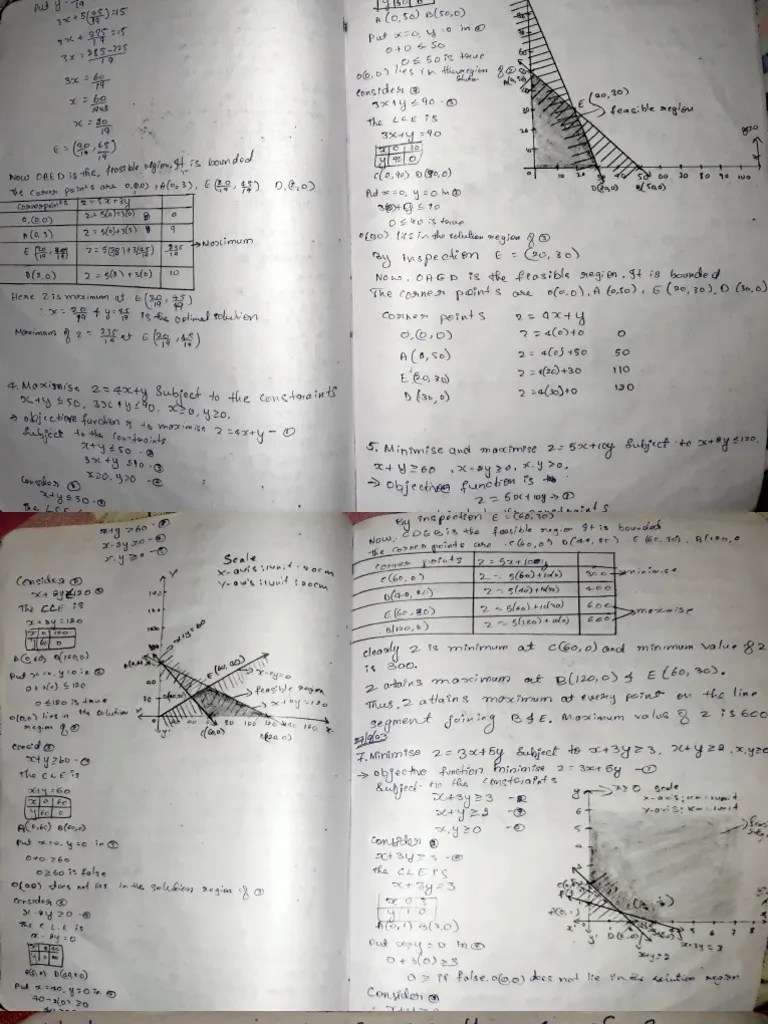 Put y = 45/19
3x + 5(45/19) = 15
3x + 225/19 = 15
3x = 285-225/19
3x = 60/19
x = 60/19×3
x = 20/19
E = (20/19, 45/19)
Now OAED is the, feasible region. It is bounded
The corner points are O(0,0), A(0,3), E(20/19, 45/19) D(2,0)
Corner points z = 5x+3y
O(0,0) z = 5(0)+3(0) 0
A(0,3) z = 5(0)+3(3) 9
E(20/19, 45/19) z = 5(20/19)+3(45/19) 235/19 → Maximum
D(2,0) z = 5(2)+3(0) 10
Here z is maximum at E(20/19, 45/19)
∴ x = 20/19 & y = 45/19 is the optimal solution
Maximum of z = 235/19 at E(20/19, 45/19)
4. Maximise z = 4x+y subject to the constraints
x+y ≤ 50, 3x+y ≤ 90, x ≥ 0, y ≥ 0.
→ objective function is to maximise z = 4x+y - ①
Subject to the constraints
x+y ≤ 50 - ②
3x+y ≤ 90 - ③
x ≥ 0, y ≥ 0 - ④
Consider ②
x+y ≤ 50 - ②
The LCE is
y 50 0
A(0,50) B(50,0)
Put x=0, y=0 in ②
0+0 ≤ 50
0 ≤ 50 is true
O(0,0) lies in the region of ②
solution
Consider ③
3x+y ≤ 90 - ③
The LCE is
3x+y = 90
x 0 30
y 90 0
C(0,90) D(30,0)
Put x=0, y=0 in ③
≤ 90
0 ≤ 90 is true
O(0,0) lies in the solution region of ③
E(20,30)
feasible region
D(30,0) B(50,0)
By inspection E = (20,30)
Now, OAED is the feasible region. It is bounded
The corner points are O(0,0), A(0,50), E(20,30), D(30,0)
Corner points z = 4x+y
O(0,0) z = 4(0)+0 0
A(0,50) z = 4(0)+50 50
E(20,30) z = 4(20)+30 110
D(30,0) z = 4(30)+0 120
5. Minimise and maximise z = 5x+10y subject to x+2y ≤ 120,
x+y ≥ 60, x-2y ≥ 0, x,y ≥ 0,
→ Objective function is
z = 5x+10y → ①
x+y ≥ 60 - ③
x-2y ≥ 0 - ④
x,y ≥ 0 - ⑤
Consider ②
x+2y ≤ 120 - ②
The LCE is
x+2y = 120
x 0 120
y 60 0
A(0,60) B(120,0)
Put x=0, y=0 in ②
0+2(0) ≤ 120
0 ≤ 120 is true
O(0,0) lies in the solution
region of ②
Consider ③
x+y ≥ 60 - ③
The LCE is
x+y = 60
x 0 60
y 60 0
Put x=0, y=0 in ③
0+0 ≥ 60
0 ≥ 60 is false
O(0,0) does not lie in the solution region of ③
Consider ④
x-2y ≥ 0 - ④
The LCE is
x-2y = 0
Put x=40, y=0 in ④
40-2(0) ≥ 0
Scale
x-axis: 1unit = 20cm
Y-axis: 1unit = 20cm
x+y=60
E(60,30)
x-2y=0
feasible region
x+2y=120
C(60,0) B(120,0)
By inspection E = (60,30)
Now, CDEB is the feasible region It is bounded
The corner points are C(60,0) D(40,20) E(60,30), B(120,0)
corner points z = 5x+10y
C(60,0) z = 5(60)+10(0) 300 → minimise
D(40,20) z = 5(40)+10(20) 400
E(60,30) z = 5(60)+10(30) 600
B(120,0) z = 5(120)+10(0) 600 → maximise
Clearly z is minimum at C(60,0) and minimum value of z
is 300.
z atains maximum at B(120,0) & E(60,30).
Thus, z attains maximum at every point on the line
segment joining B & E. Maximum value of z is 600
7. Minimise z = 3x+5y subject to x+3y ≥ 3, x+y ≥ 2, x,y ≥ 0
→ objective function minimise z = 3x+5y - ①
Subject to the constraints
x+3y ≥ 3 - ②
x+y ≥ 2 - ③
x,y ≥ 0 - ④
Consider ②
x+3y ≥ 3 - ②
The LCE is
x+3y = 3
x 0 3
y 1 0
A(0,1) B(3,0)
Put x=y=0 in ②
0+3(0) ≥ 3
0 ≥ is false. O(0,0) does not lie in the solution region
Consider ③
x ≥ 0 Scale
x+3y=3
x+y=2